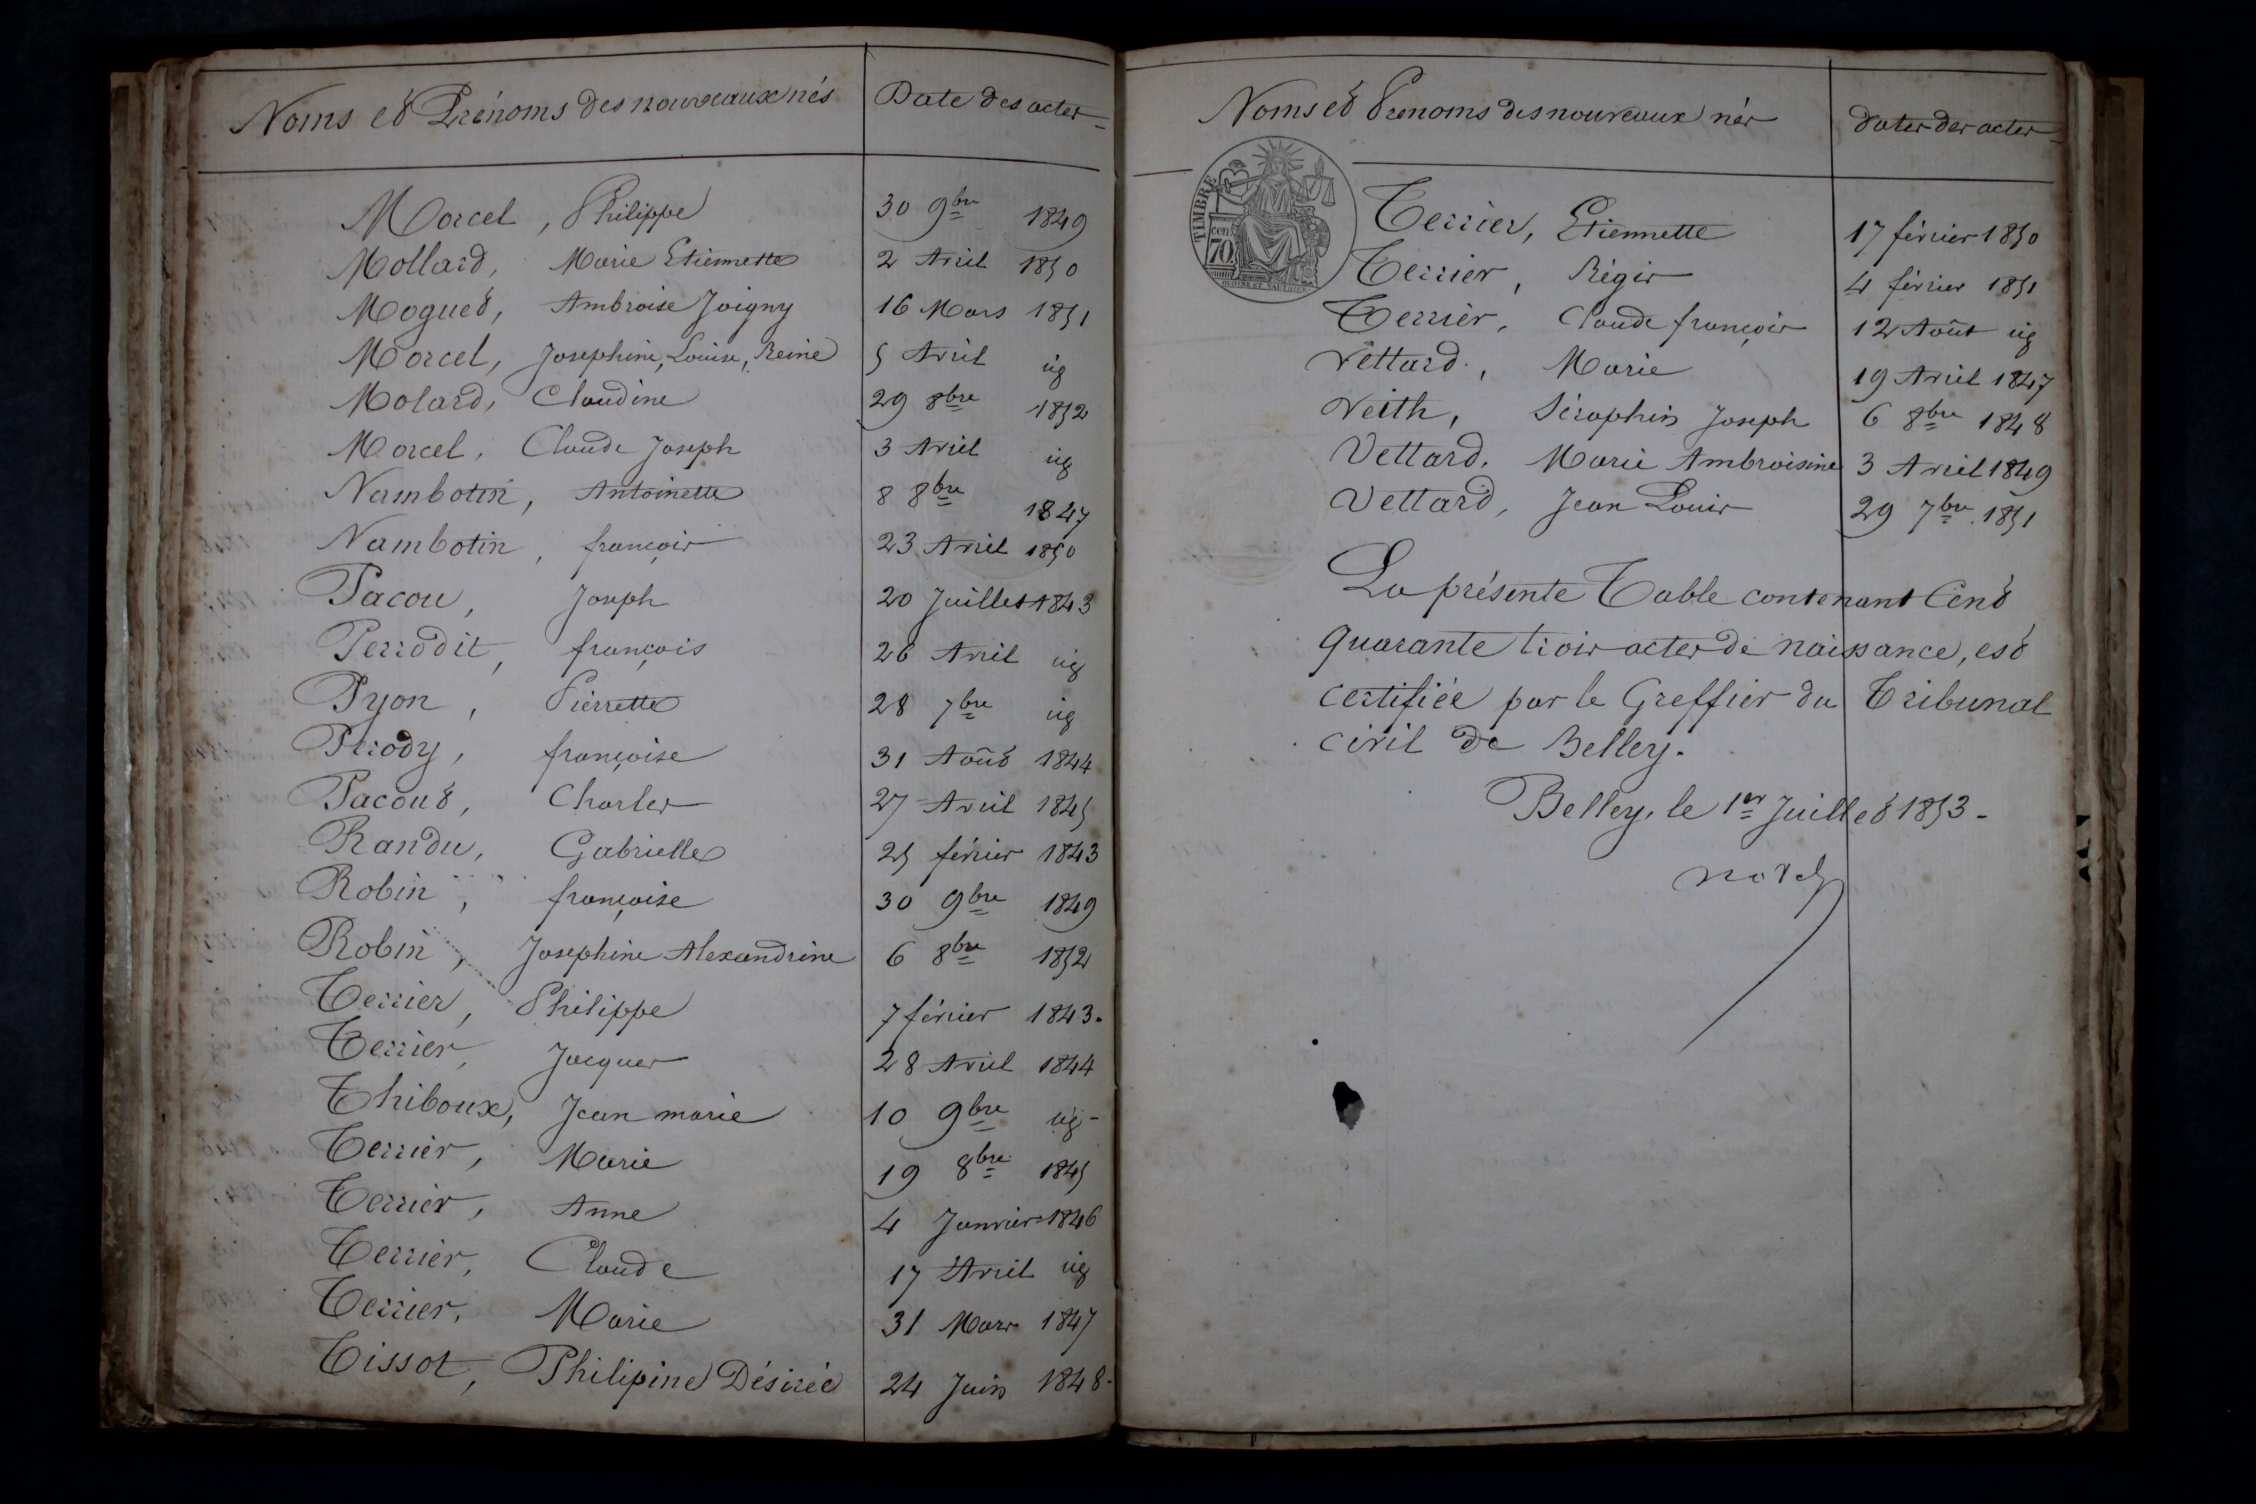 Noms et Prénoms des nouveaux nés Date des actes
Morcel, Philippe 30 9bre 1849
Mollard, Marie Etiennette 2 Avril 1850
Moguet, Ambroise Joigny 16 Mars 1851
Morcel, Josephine, Louise, Reine 5 Avril id
Molard, Claudine 29 8bre 1852
Morcel, Claude Joseph 3 Avril id
Nambotin, Antoinette 8 8bre 1847
Nambotin, françois 23 Avril 1850
Pacou, Joseph 20 Juillet 1843
Perrodit, françois 26 Avril id
Pyon, Pierrette 28 7bre id
Perrody, françoise 31 Août 1844
Pacout, Charles 27 Avril 1845
Randu, Gabrielle 25 février 1843
Robin, françoise 30 9bre 1849
Robin, Josephine Alexandrine 6 8bre 1852
Terrier, Philippe 7 février 1843.
Terrier, Jacques 28 Avril 1844
Thiboux, Jean marie 10 9bre id -
Terrier, Marie 19 8bre 1845
Terrier, Anne 4 Janvier 1846
Terrier, Claude 17 Avril id
Terrier, Marie 31 Mars 1847
Tissot, Philipine Désirée 24 Juin 1848.
Noms et Prenoms des nouveaux nés dates des actes
TIMBRE
70 cen
Terrier, Etiennette 17 février 1850
Terrier, Régis 4 février 1851
Terrier, Claude françois 12 Août id
Vettard, Marie 19 Avril 1847
Veith, Séraphin Joseph 6 8bre 1848
Vettard, Marie Ambroisine 3 Avril 1849
Vettard, Jean Louis 29 7bre 1851
La présente Table contenant Cent
quarante trois actes de naissance, est
certifiée par le Greffier du Tribunal
civil de Belley.
Belley, le 1er Juillet 1853 -